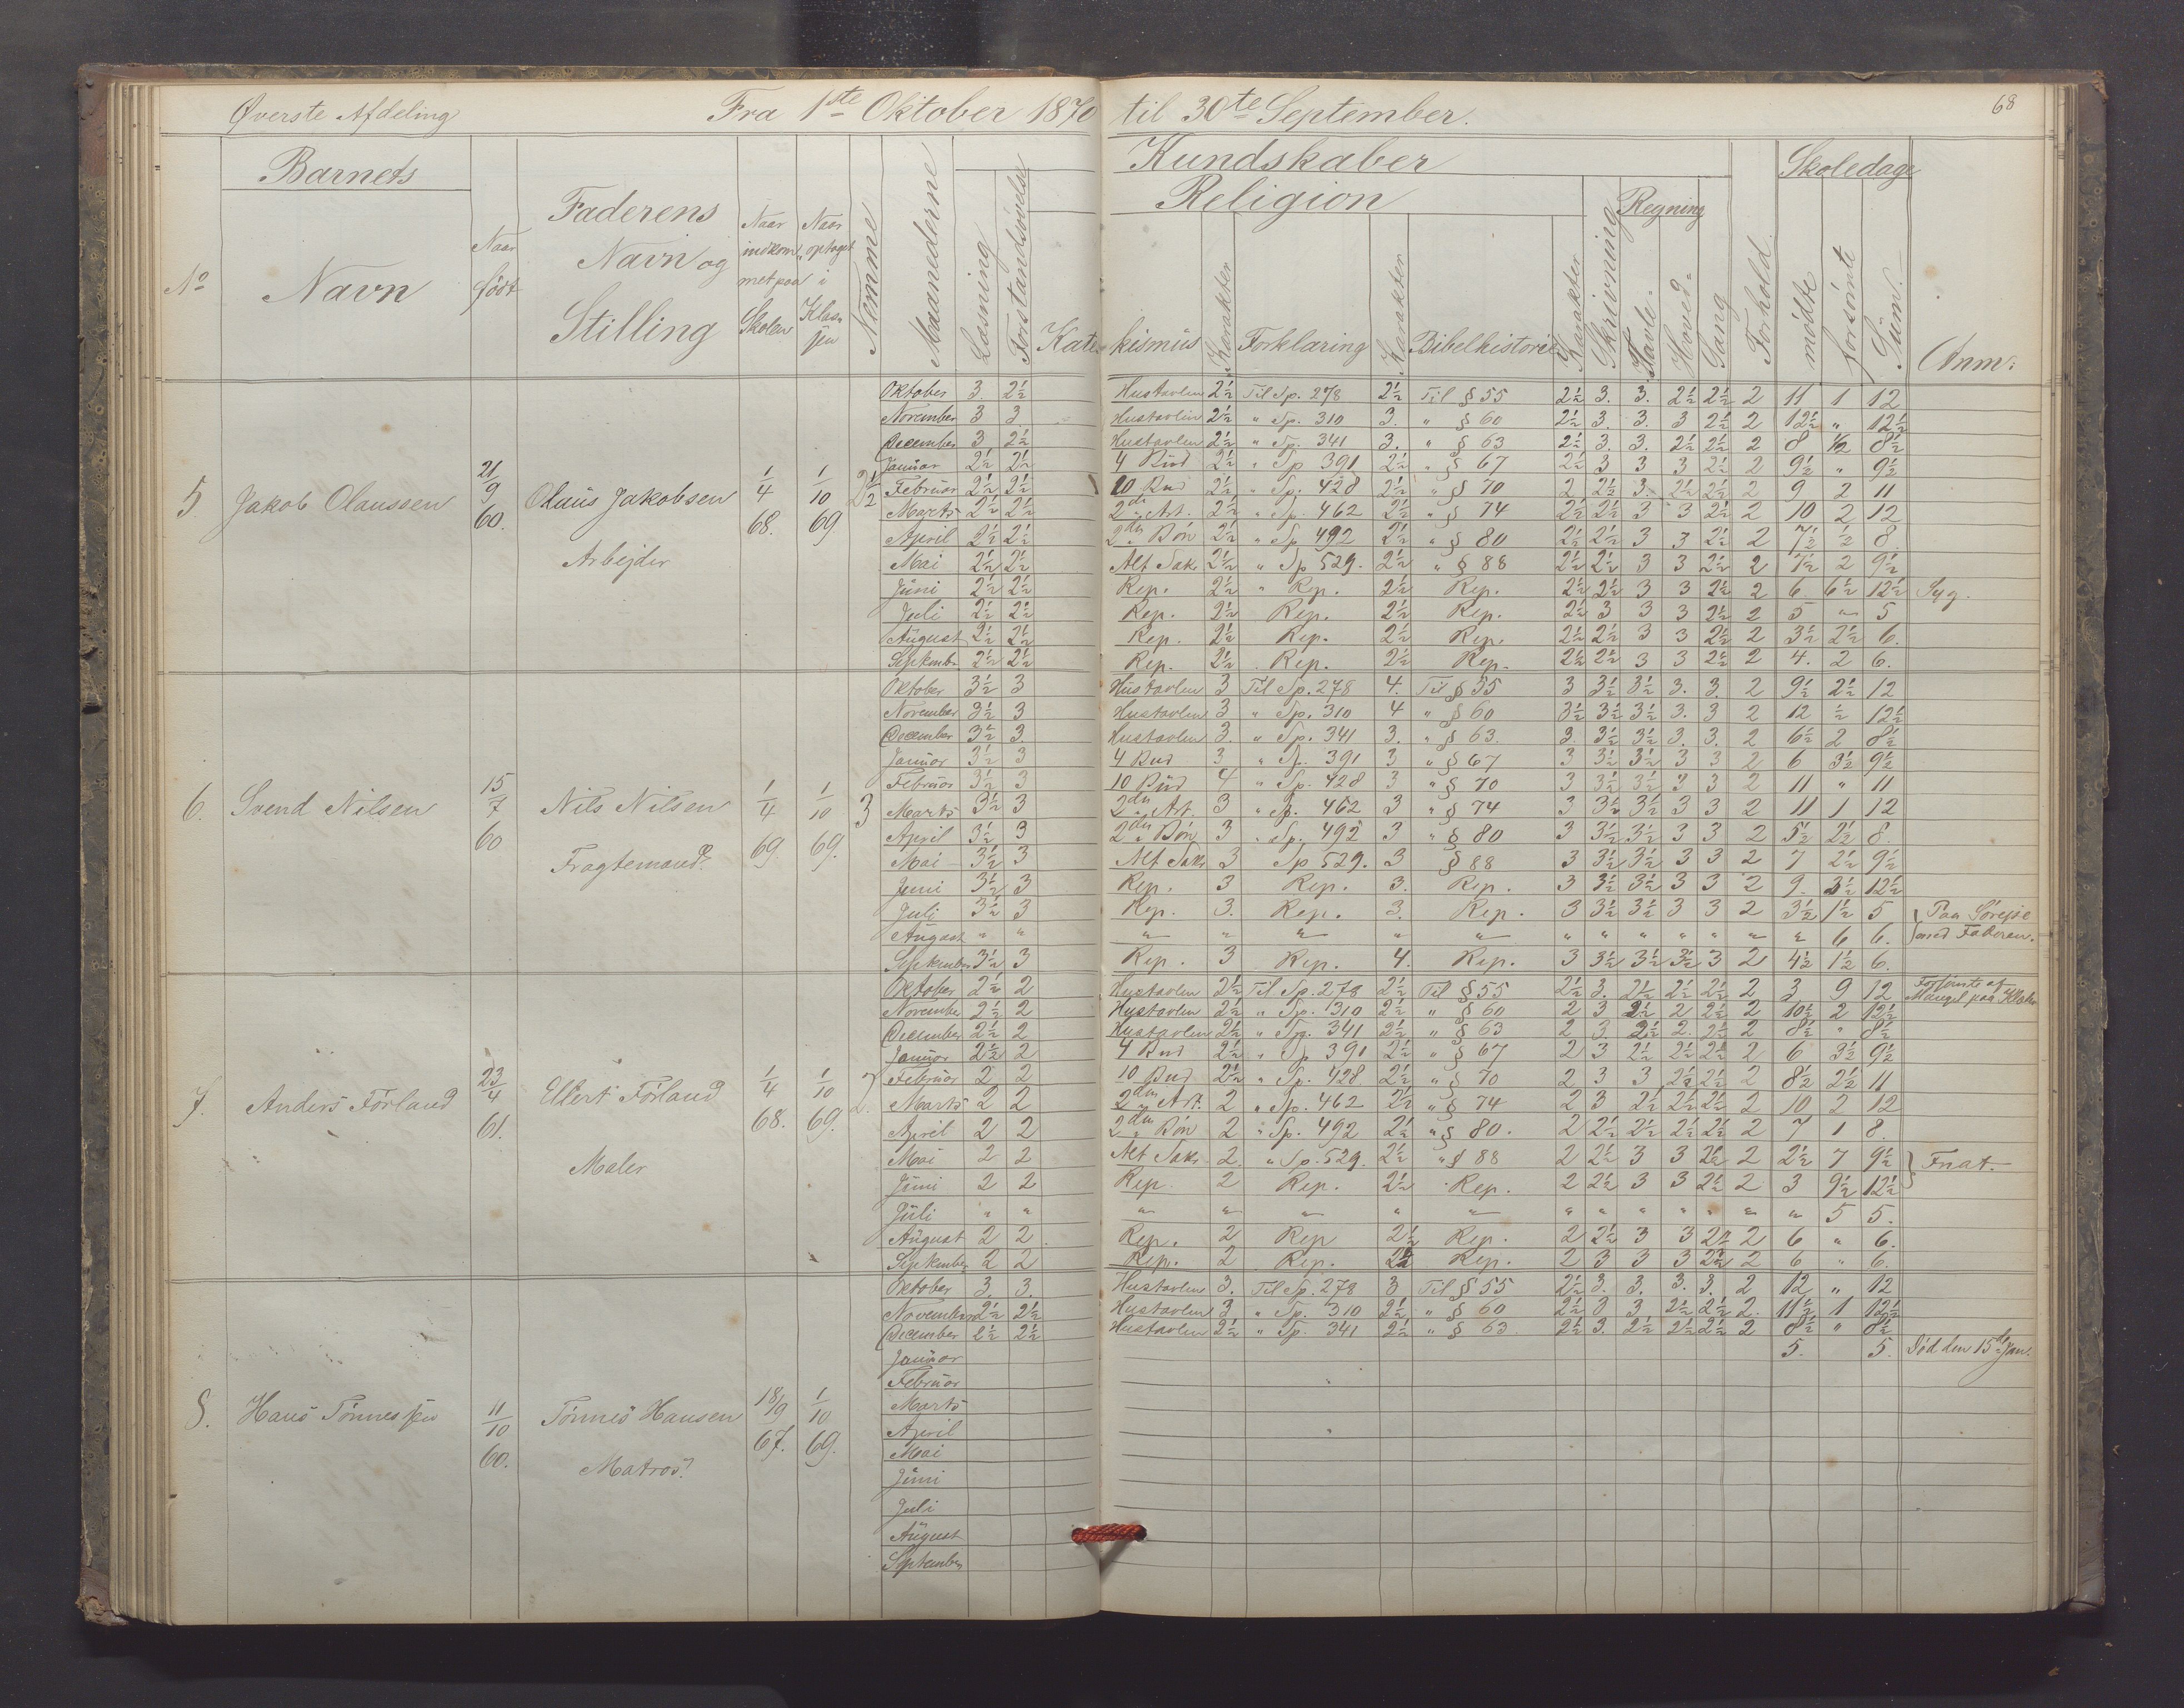 Øverste Afdeling Fra 1ste Oktober 1870 til 30te September. 68
Barnets Kundskaber Skoledage
Religion Regning
No Navn Naar født Faderens Navn og Stilling Naar indkommet paa Skolen Naar optaget i Klassen Nemme Maanederne Læsning Forstandsøvelse Katekismus Karakter Forklaring Karakter Bibelhistorie Karakter Skrivning Tavle- Hoved- Sang Forhold mødte forsømte Sum Anm:
5 Jakob Olaussen 21/9 60. Olaüs Jakobsen Arbejder 1/4 68. 1/10 69 2½
Oktober 3. 2½ Hustavlen 2½ Til Sp. 278 2½ Til § 55 2½ 3. 3. 2½ 2½ 2 11 1 12
November 3 3. Hustavlen 2½ " Sp. 310 3. " § 60 2½ 3. 3. 3 2½ 2 12½ " 12½
December 3 2½ Hustavlen 2½ " Sp. 341 3. " § 63 2½ 3. 3. 2½ 2½ 2 8 ½ 8½
Januar 2½ 2½ 4 Bud 2½ " Sp 391 2½ " § 67 2½ 3 3 3 2½ 2 9½ " 9½
Februar 2½ 2½ 10 Bud 2½ " Sp. 428 2½ " § 70 2 2½ 3. 2½ 2½ 2 9 2 11
Marts 2½ 2½ 2den Art. 2½ " Sp. 462 2½ " § 74 2½ 2½ 3 3 2½ 2 10 2 12
April 2½ 2½ 2den Bön 2½ " Sp 492 2½ " § 80 2½ 2½ 3 3 2½ 2 7½ ½ 8
Mai 2½ 2½ Alt. Sak. 2½ " Sp 529. 2½ " § 88 2½ 2½ 3 3 2½ 2 7½ 2 9½
Juni 2½ 2½ Rep. 2½ " Rep. 2½ Rep. 2½ 2½ 3 3 2½ 2 6 6½ 12½ Syg.
Juli 2½ 2½ Rep. 2½ Rep. 2½ Rep. 2½ 3 3 3 2½ 2 5 " 5
August 2½ 2½ Rep. 2½ Rep. 2½ Rep. 2½ 2½ 3 3 2½ 2 3½ 2½ 6.
September 2½ 2½ Rep. 2½ Rep. 2½ Rep. 2½ 2½ 3 3 2½ 2 4. 2 6.
6. Svend Nilsen 15/7 60 Nils Nilsen Fragtemand. 1/4 69. 1/10 69. 3
Oktober 3½ 3 Hustavlen 3 Til Sp. 278 4. Til § 55 3 3½ 3½ 3. 3. 2 9½ 2½ 12
November 3½ 3 Hustavlen 3 " Sp. 310 4 " § 60 3½ 3½ 3½ 3. 3 2 12 ½ 12½
December 3½ 3 Hustavlen 3. " Sp. 341 3. " § 63. 3. 3½ 3½ 3. 3. 2 6½ 2 8½
Januar 3½ 3 4 Bud 3 " Sp. 391 3 " § 67 3 3½ 3½ 3 3 2 6 3½ 9½
Februar 3½ 3 10 Bud 4 " Sp. 428 3 " § 70 3 3½ 3½ 3 3 2 11 " 11
Marts 3½ 3 2den Art. 3 " Sp. 462 3 " § 74 3 3½ 3½ 3 3 2 11 1 12
April 3½ 3 2den Bön 3 " Sp. 492 3 " § 80 3 3½ 3½ 3 3 2 5½ 2½ 8.
Mai 3½ 3 Alt. Sak. 3 Sp 529. 3 § 88 3 3½ 3½ 3 3 2 7 2½ 9½
Juni 3½ 3 Rep. 3 Rep. 3. Rep. 3 3½ 3½ 3 3 2 9. 3½ 12½
Juli 3½ 3 Rep. 3. Rep. 3. Rep. 3 3½ 3½ 3 3 2 3½ 1½ 5 Paa Sørejse
August " " " " " " " " " " " " " " 6 6. med Faderen.
September 3½ 3 Rep. 3 Rep. 4. Rep. 3 3½ 3½ 3½ 3 2 4½ 1½ 6.
7. Anders Förland 23/4 61. Ellert Förland Maler 1/4 68. 1/10 69. 2.
Oktober 2½ 2 Hustavlen 2½ Til Sp. 278 2½ Til § 55 2½ 3. 2½ 2½ 2½ 2 3 9 12 Forsømte af Mangel paa Klæder
November 2½ 2 Hustavlen 2½ " Sp. 310 2½ " § 60 2 3 2½ 2 2½ 2 10½ 2 12½
December 2½ 2 Hustavlen 2½ " Sp. 341 2½ " § 63 2 3 2½ 2. 2½ 2 8½ " 8½
Januar 2½ 2 4 Bud 2½ " Sp 391 2½ " § 67 2 3 2½ 2½ 2½ 2 6 3½ 9½
Februar 2 2 10 Bud 2½ " Sp. 428 2½ " § 70 2 3 3 2½ 2½ 2 8½ 2½ 11
Marts 2 2 2den Art. 2 " Sp. 462 2½ " § 74 2 3 2½ 2½ 2½ 2 10 2 12
April 2 2 2den Bön 2 " Sp. 492 2½ " § 80. 2 2½ 2½ 2½ 2½ 2 7 1 8.
Mai 2 2 Alt Sak. 2 " Sp. 529. 2½ " § 88 2 2½ 3 3 2½ 2 2½ 7 9½ Fnat.
Juni 2 2 Rep. 2 Rep. 2½ Rep. 2 2½ 3 3 2½ 2 3 9½ 12½
Juli " " " " " " " " " " " " " " 5 5.
August 2 2 Rep. 2 Rep 2½ Rep. 2 2½ 3 3 2½ 2 6 " 6.
September 2 2 Rep. 2 Rep. 2½ Rep. 2 3 3 3 2½ 2 6 " 6.
8. Hans Tönnessen 11/10 60. Tönnes Hansen Matros. 18/9 67. 1/10 69.
Oktober 3. 3. Hustavlen 3. Til Sp. 278 3 Til § 55 2½ 3. 3. 3. 3. 2 12 " 12
November 2½ 2½ Hustavlen 3 " Sp. 310 2½ " § 60 2½ 3 3 2½ 2½ 2. 11½ 1 12½
December 2½ 2½ Hustavlen 2½ " Sp. 341 2½ " § 63. 2½ 3. 2½ 2½ 2½ 2 8½ " 8½
Januar 5. 5. Död den 15de Jan.
Februar
Marts
April
Mai
Juni
Juli
August
September